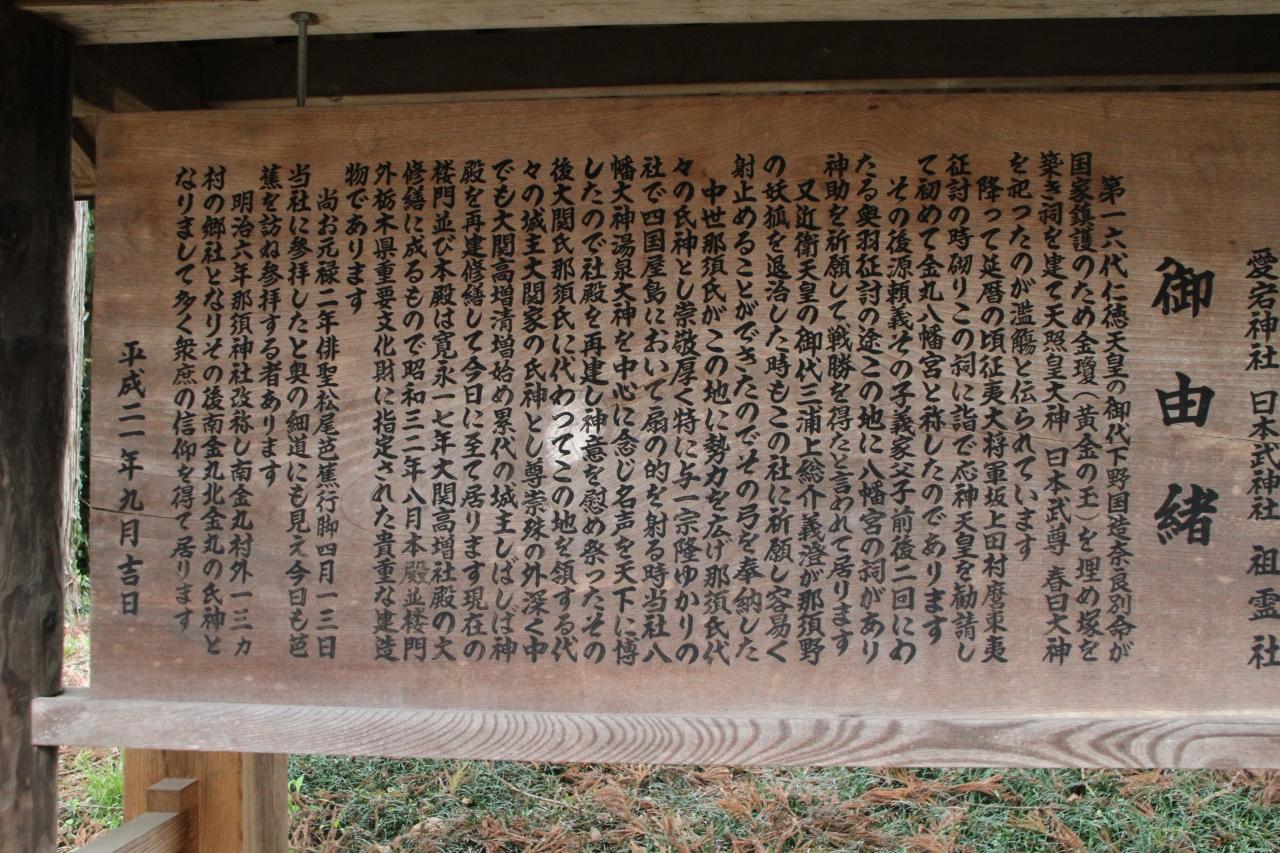 愛宕神社 日本武神社 祖霊社
御由緒
第一六代仁徳天皇の御代下野国造奈良別命が
国家鎮護のため金瓊（黄金の玉）を埋め塚を
築き祠を建て天照皇大神 日本武尊 春日大神
を祀ったのが濫觴と伝られています
降って延暦の頃征夷大将軍坂上田村麿東夷
征討の時砌りこの祠に詣で応神天皇を勧請し
て初めて金丸八幡宮と称したのであります
その後源頼義その子義家父子前後二回にわ
たる奥羽征討の途この地に八幡宮の祠があり
神助を祈願して戦勝を得たと言われて居ります
又近衛天皇の御代三浦上総介義澄が那須野
の妖狐を退治した時もこの社に祈願し容易く
射止めることができたのでその弓を奉納した
中世那須氏がこの地に勢力を広げ那須氏代
々の氏神とし崇敬厚く特に与一宗隆ゆかりの
社で四国屋島において扇の的を射る時当社八
幡大神湯泉大神を中心に念じ名声を天下に博
したので社殿を再建し神意を慰め祭ったその
後大関氏那須氏に代わってこの地を領する代
々の城主大関家の氏神とし尊崇殊の外深く中
でも大関高増清増始め累代の城主しばしば神
殿を再建修繕して今日に至て居ります現在の
楼門並び本殿は寛永一七年大関高増社殿の大
修繕に成るもので昭和三二年八月本殿並楼門
外栃木県重要文化財に指定された貴重な建造
物であります
尚お元禄二年俳聖松尾芭蕉行脚四月一三日
当社に参拝したと奥の細道にも見え今日も芭
蕉を訪ね参拝する者あります
明治六年那須神社改称し南金丸村外一三ヵ
村の郷社となりその後南金丸北金丸の氏神と
なりまして多く衆庶の信仰を得て居ります
平成二一年九月吉日